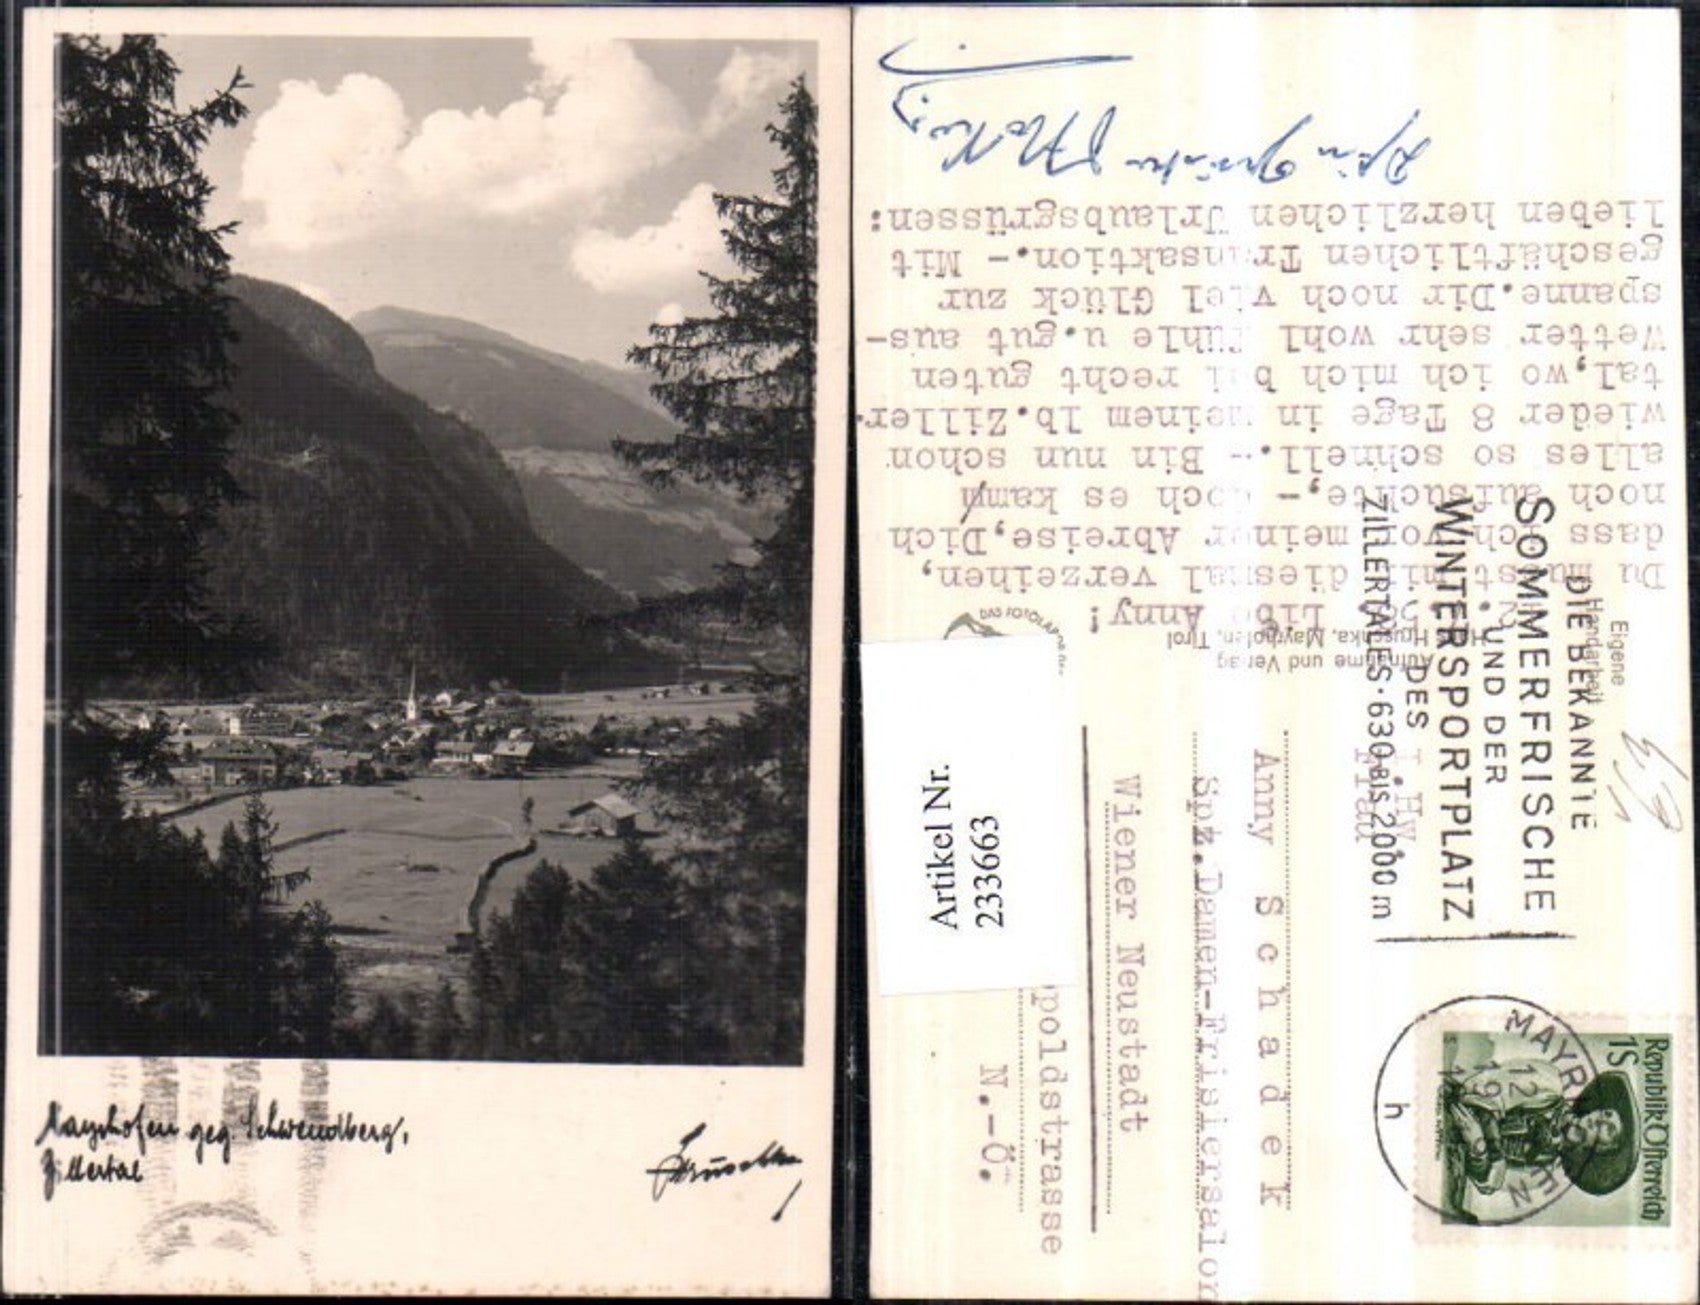 Mayrhofen geg. Schwendberg,
Zillertal
Hruschka
Libe Anny!
Du musst mir diesmal verzeihen,
dass ich vor meiner Abreise, Dich
noch aufsuchte,- doch es kam
alles so schnell.- Bin nun schon
wieder 8 Tage in meinem lb. Ziller-
tal, wo ich mich bei recht guten
Wetter sehr wohl fühle u.gut aus-
spanne. Dir noch viel Glück zur
geschäftlichen Transaktion.- Mit
lieben herzlichen Urlaubsgrüssen:
DAS FOTOLABOR
Aufnahme und Verlag
Hruschka, Mayrhofen, Tirol
Eigene
Handarbeit
DIE BEKANNTE
SOMMERFRISCHE
UND DER
WINTERSPORTPLATZ
DES
ZILLERTALES·630 BIS 2000 m
MAYRHOFEN
12
19
h
Republik Österreich
1S
Frau
Anny Schadek
Spz.Damen-Frisiersalon
Wiener Neustadt
poldstrasse
N.-Ö.
Artikel Nr.
2339663